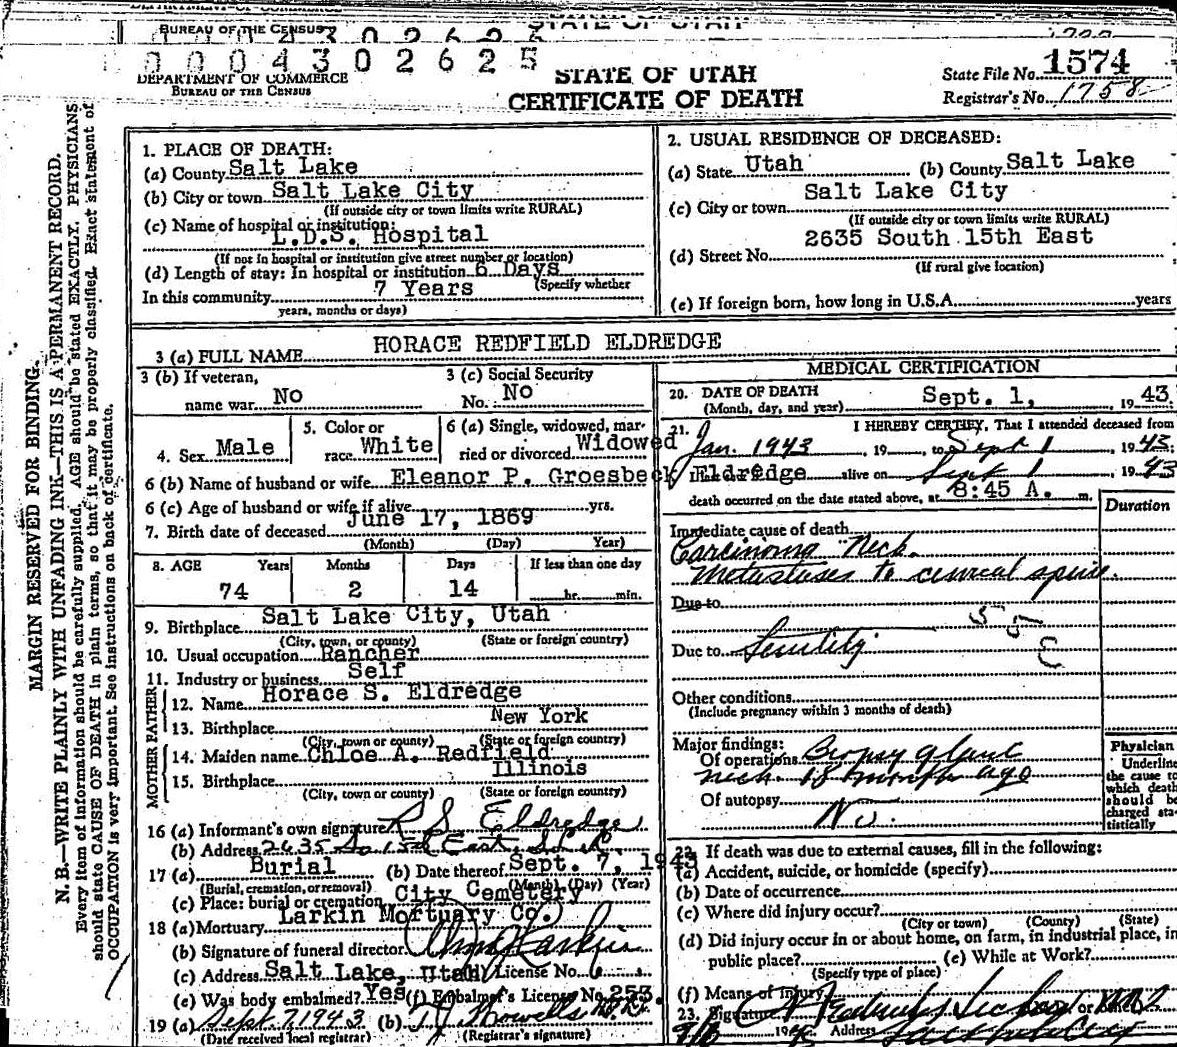 BUREAU OF THE CENSUS
STATE OF UTAH
0 0 0 4 3 0 2 6 2 5
DEPARTMENT OF COMMERCE
BUREAU OF THE CENSUS
STATE OF UTAH
CERTIFICATE OF DEATH
State File No. 1574
Registrar's No. 1758
MARGIN RESERVED FOR BINDING.
N. B.—WRITE PLAINLY WITH UNFADING INK—THIS IS A PERMANENT RECORD.
Every item of information should be carefully supplied. AGE should be stated EXACTLY. PHYSICIANS
should state CAUSE OF DEATH in plain terms, so that it may be properly classified. Exact statement of
OCCUPATION is very important. See instructions on back of certificate.
1. PLACE OF DEATH:
(a) County Salt Lake
(b) City or town Salt Lake City
(If outside city or town limits write RURAL)
(c) Name of hospital or institution:
L.D.S. Hospital
(If not in hospital or institution give street number or location)
(d) Length of stay: In hospital or institution 6 Days
(Specify whether
In this community 7 Years
years, months or days)
2. USUAL RESIDENCE OF DECEASED:
(a) State Utah (b) County Salt Lake
(c) City or town Salt Lake City
(If outside city or town limits write RURAL)
(d) Street No. 2635 South 15th East
(If rural give location)
(e) If foreign born, how long in U.S.A. years
3 (a) FULL NAME HORACE REDFIELD ELDREDGE
3 (b) If veteran, name war No
3 (c) Social Security No. No
4. Sex Male
5. Color or race White
6 (a) Single, widowed, married or divorced Widowed
6 (b) Name of husband or wife Eleanor P. Groesbeck Eldredge
6 (c) Age of husband or wife if alive yrs.
7. Birth date of deceased June 17, 1869
(Month) (Day) Year)
8. AGE Years Months Days If less than one day
74 2 14 hr. min.
9. Birthplace Salt Lake City, Utah
(City, town, or county) (State or foreign country)
10. Usual occupation Rancher
11. Industry or business Self
FATHER
12. Name Horace S. Eldredge
13. Birthplace New York
(City, town or county) (State or foreign country)
MOTHER
14. Maiden name Chloe A. Redfield
15. Birthplace Illinois
(City, town or county) (State or foreign country)
16 (a) Informant's own signature R S. Eldredge
(b) Address 2635 So 15th East, S.L.
17 (a) Burial (b) Date thereof Sept. 7, 1943
(Burial, cremation, or removal) (Month) (Day) (Year)
(c) Place: burial or cremation City Cemetery
18 (a) Mortuary Larkin Mortuary Co.
(b) Signature of funeral director
(c) Address Salt Lake, Utah License No. 6
(e) Was body embalmed? Yes (f) Embalmer's License No. 253.
19 (a) Sept. 7 1943 (b)
(Date received local registrar) (Registrar's signature)
MEDICAL CERTIFICATION
20. DATE OF DEATH
(Month, day, and year) Sept. 1, 19 43
21. I HEREBY CERTIFY, That I attended deceased from
Jan. 1943, 19 , to Sept 1, 19 43,
alive on Sept 1, 19 43
death occurred on the date stated above, at 8:45 A. m.
Duration
Immediate cause of death
Carcinoma Neck.
Metastases to cervical spine.
Due to
55
Due to Senility
Other conditions
(Include pregnancy within 3 months of death)
Major findings:
Of operations Biopsy gland
neck. 18 months ago
Of autopsy No
Physician
Underline
the cause to
which death
should be
charged statistically
22. If death was due to external causes, fill in the following:
(a) Accident, suicide, or homicide (specify)
(b) Date of occurrence
(c) Where did injury occur?
(City or town) (County) (State)
(d) Did injury occur in or about home, on farm, in industrial place, in
public place? (e) While at Work?
(Specify type of place)
(f) Means of injury
23. Signature
Address